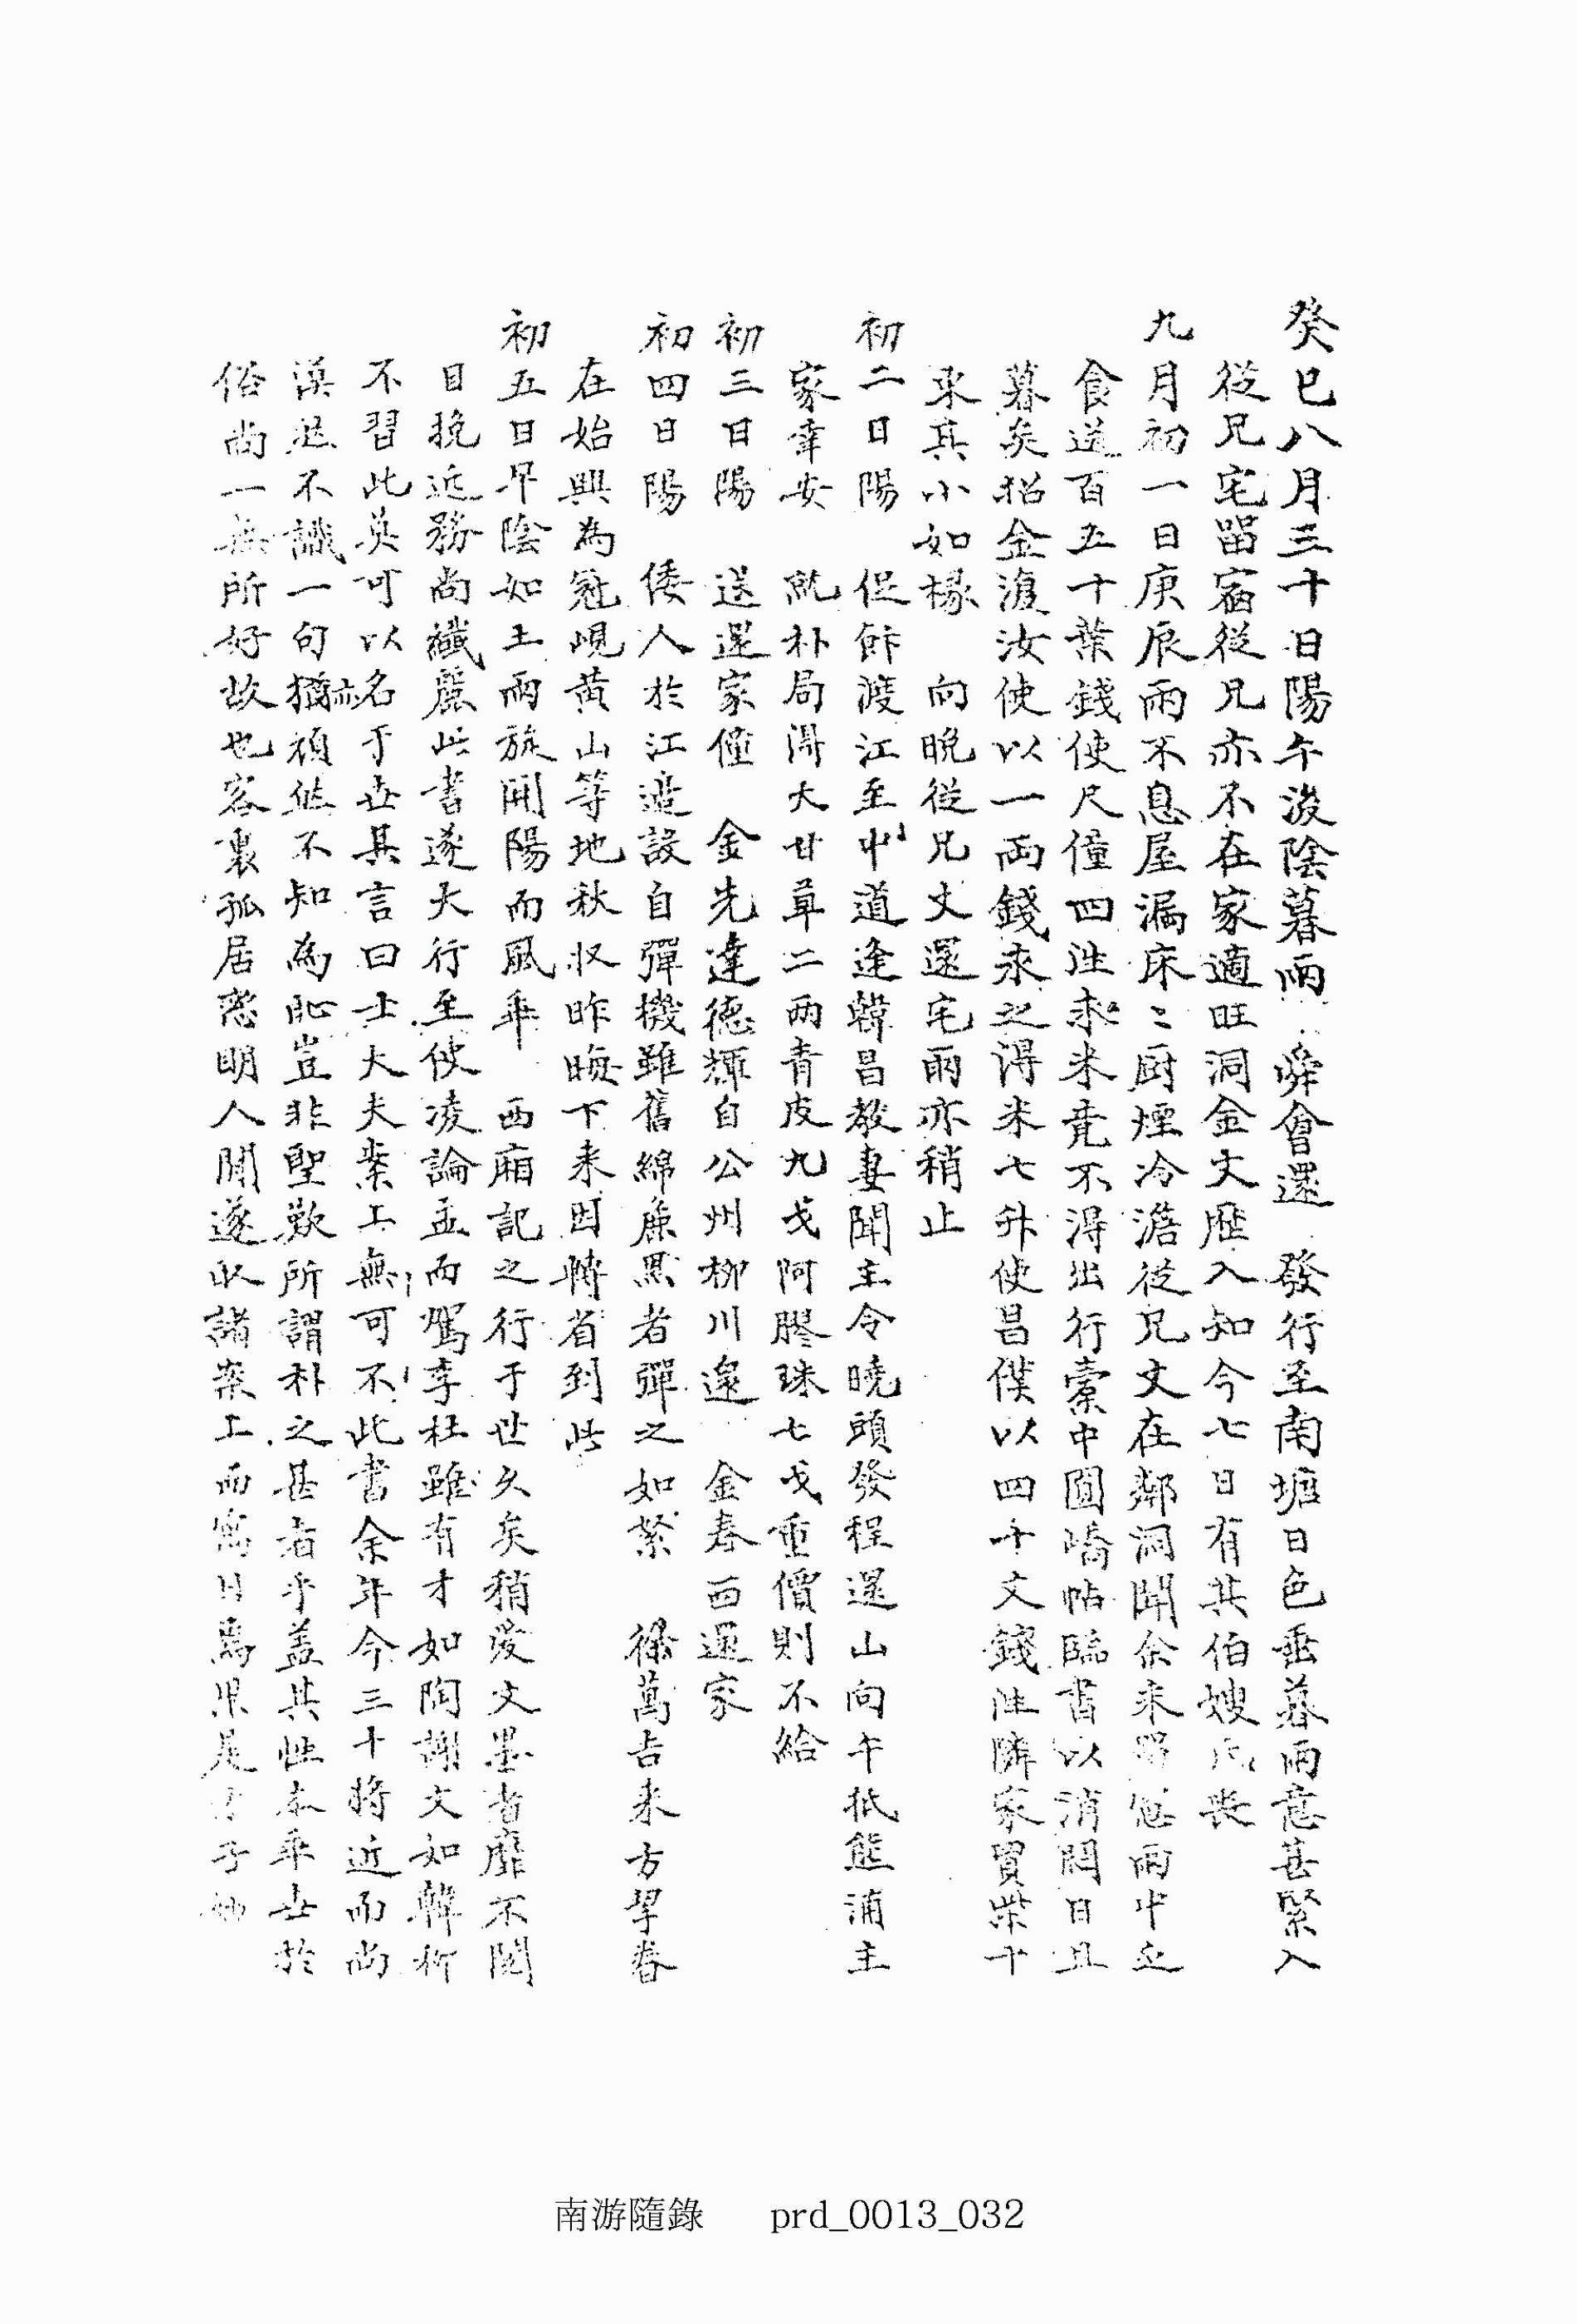 癸巳八月三十日陽午後陰暮雨 舜會還 發行至南塘日色垂暮雨意甚緊入
從兄宅留宿從兄亦不在家適旺洞金丈歷入知今七日有其伯嫂氏喪
九月初一日庚辰雨不息屋漏床〻厨煙冷澹從兄丈在鄰洞聞余來冒雨中之
食送百五十葉錢使尺僮四往求米竟不淂出行橐中圓嶠帖臨書以消閒日且
暮矣招金渡汝使以一兩錢求之淂米七升使昌僕以四十文錢往隣家買柴十
束其小如椽 向晚從兄丈還宅雨亦稍止
初二日陽 促飰渡江至中道逢韓昌敎妻聞主令曉頭發程還山向午抵熊浦主
家幸安 就朴局淂大甘草二兩青皮九戔阿膠珠七戔重價則不給
初三日陽 送還家僮 金先達德輝自公州柳川還 金春西還家
初四日陽 倭人於江邊設自彈機雖舊綿麁黑者彈之如絮 徐萬吉來方挈眷
在始興為冠峴黃山等地秋收昨晦下来因轉省到此
初五日早陰如土雨旋開陽而風乖 西廂記之行于世久矣稍愛文墨者靡不関
目挽近務尚纖麗此書遂大行至使凌論孟而駕李杜雖有才如陶謝文如韓柳
不習此莫可以名于世其言曰士大夫案上無可不此書余年今三十將近而尚
漠然不識一句猶亦頑然不知為恥豈非聖歎所謂朴之甚者乎盖其性本乖世於
俗尚一無所好故也客裏孤居悉明人閒遂收諸案上而寓目焉果是才子
南游隨錄 prd_0013_032